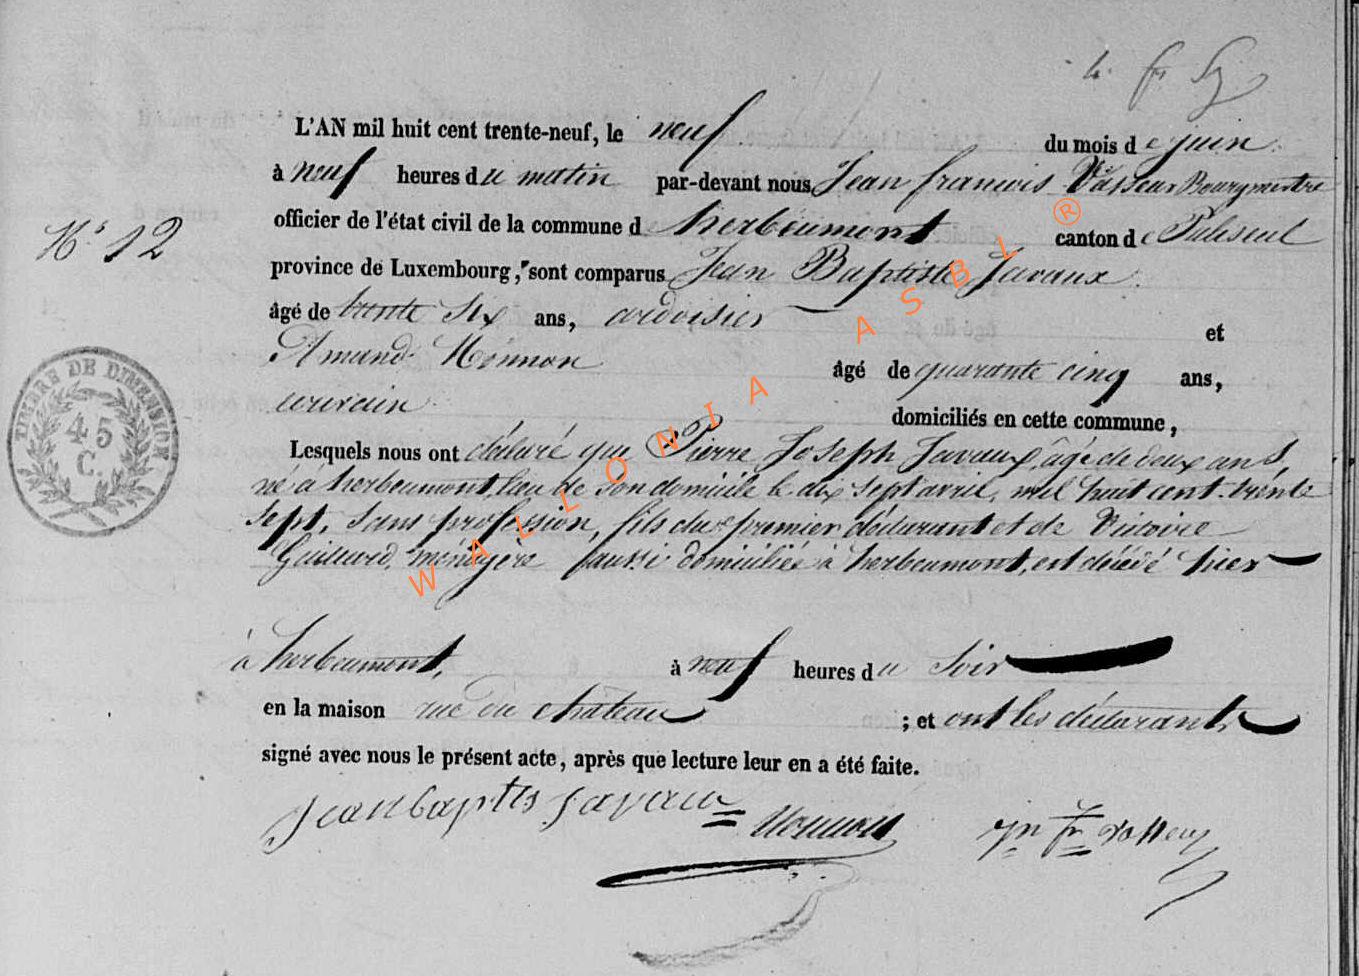 L'AN mil huit cent trente-neuf, le neuf du mois de juin
à neuf heures du matin par-devant nous Jean francois Vasseur Bourgmestre
officier de l'état civil de la commune de herbeumont canton de Paliseul
N° 12
province de Luxembourg, sont comparus Jean Baptiste Javaux
âgé de trente six ans, ardoisier et
Amand Monnon âgé de quarante cinq ans,
domiciliés en cette commune,
TIMBRE DE DIMENSION
45
C.
Lesquels nous ont déclaré que Pierre Joseph Javaux, âgé de deux ans,
né à herbeumont, lieu de son domicile le dix sept avril, mil huit cent trente
sept, sans profession, fils du premier déclarant et de Victoire
Guillard, ménagère aussi domiciliée à herbeumont, est décédé hier
à herbeumont, à neuf heures du soir
en la maison rue du château ; et ont les déclarants
signé avec nous le présent acte, après que lecture leur en a été faite.
Jean baptis Javaux Monnon jn fr Vasseur
WALLONIA ASBL ®